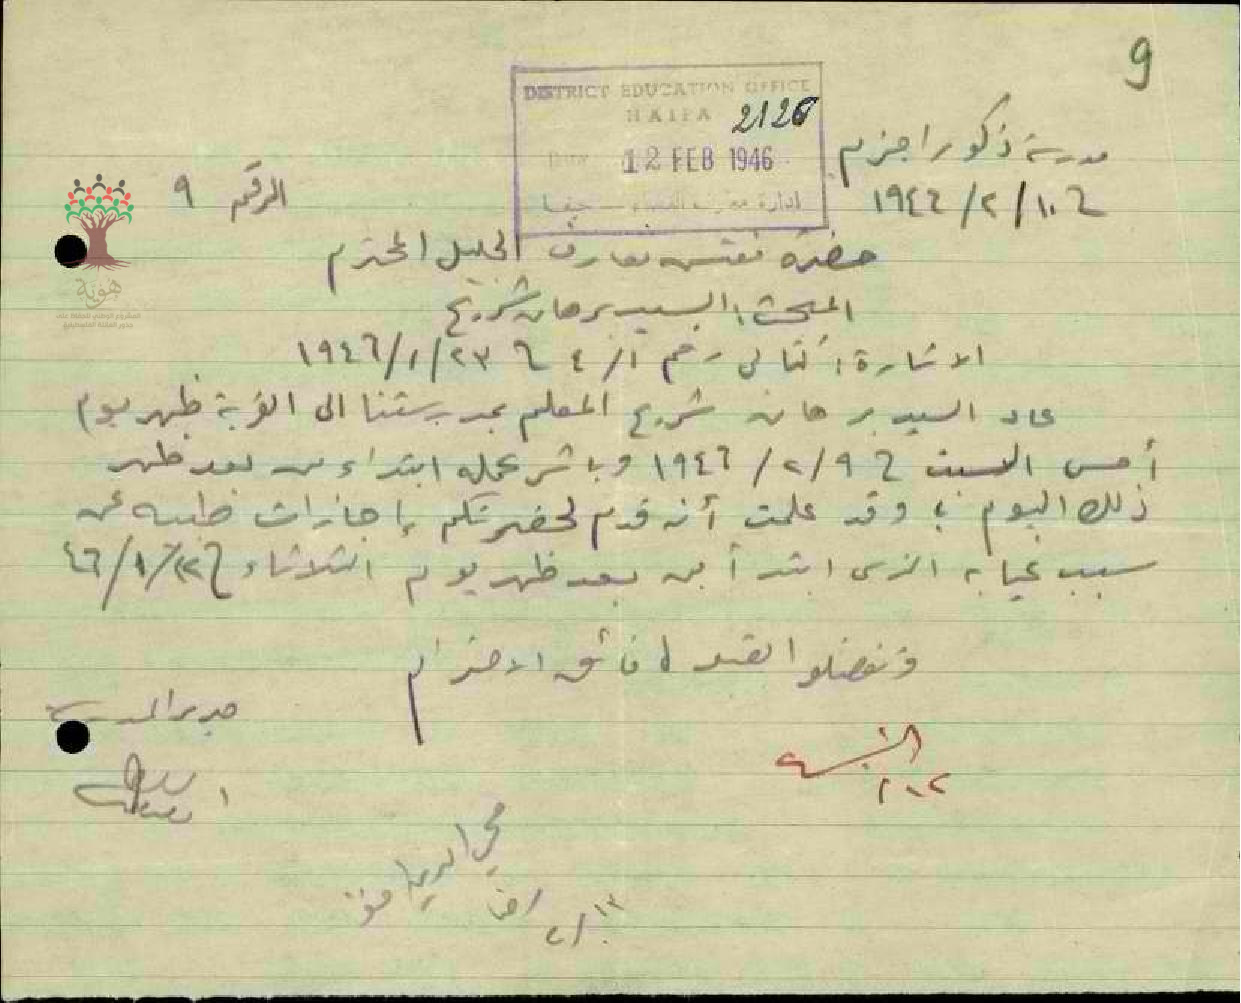 9
DISTRICT EDUCATION OFFICE
HAIFA
2126
Date 12 FEB 1946
ادارة معارف اللواء - حيفا
مدرسة ذكور اجزم
١٩٤٦/٢/١٠
الرقم ٩
حضرة مفتش معارف الجليل المحترم
المبحث: السيد برهان
الاشارة: كتابي رقم ٤/١ ١٩٤٦/١/٢٣
عاد السيد برهان المعلم بمدرستنا الى القرية ظهر يوم
أمس السبت ١٩٤٦/٢/٩ وباشر عمله ابتداء من بعد ظهر
ذلك اليوم، وقد علمت أنه قدم لحضرتكم إجازات طبيه عن
سبب غيابه الذي ابتدأ من بعد ظهر يوم الثلاثاء ٤٦/١/٢٢
وتفضلوا بقبول فائق الاحترام
مدير المدرسة
هوية